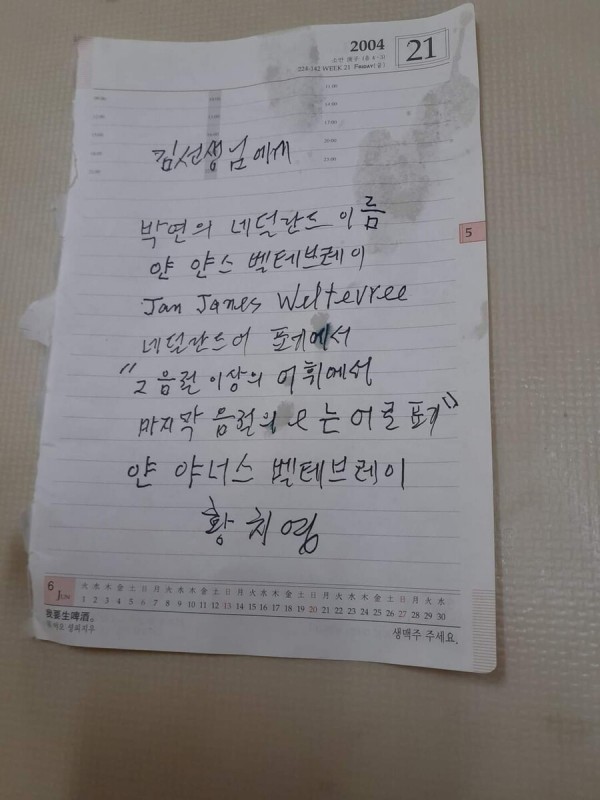 2004 21
소만 윤 4·3
224-142 WEEK 21 FRIDAY(금)
김선생님에게
박연의 네덜란드 이름
5
얀 얀스 벨테브레이
Jan Janes Weltevree
네덜란드어 표기에서
"2음절 이상의 어휘에서
마지막 음절의 e는 어로 표기"
얀 야너스 벨테브레이
황치영
6 JUNE
火 水 木 金 土 日 月 火 水 木 金 土 日 月 火 水 木 金 土 日 月 火 水 木 金 土 日 月 火 水
1 2 3 4 5 6 7 8 9 10 11 12 13 14 15 16 17 18 19 20 21 22 23 24 25 26 27 28 29 30
我要生啤酒。
생맥주 주세요.